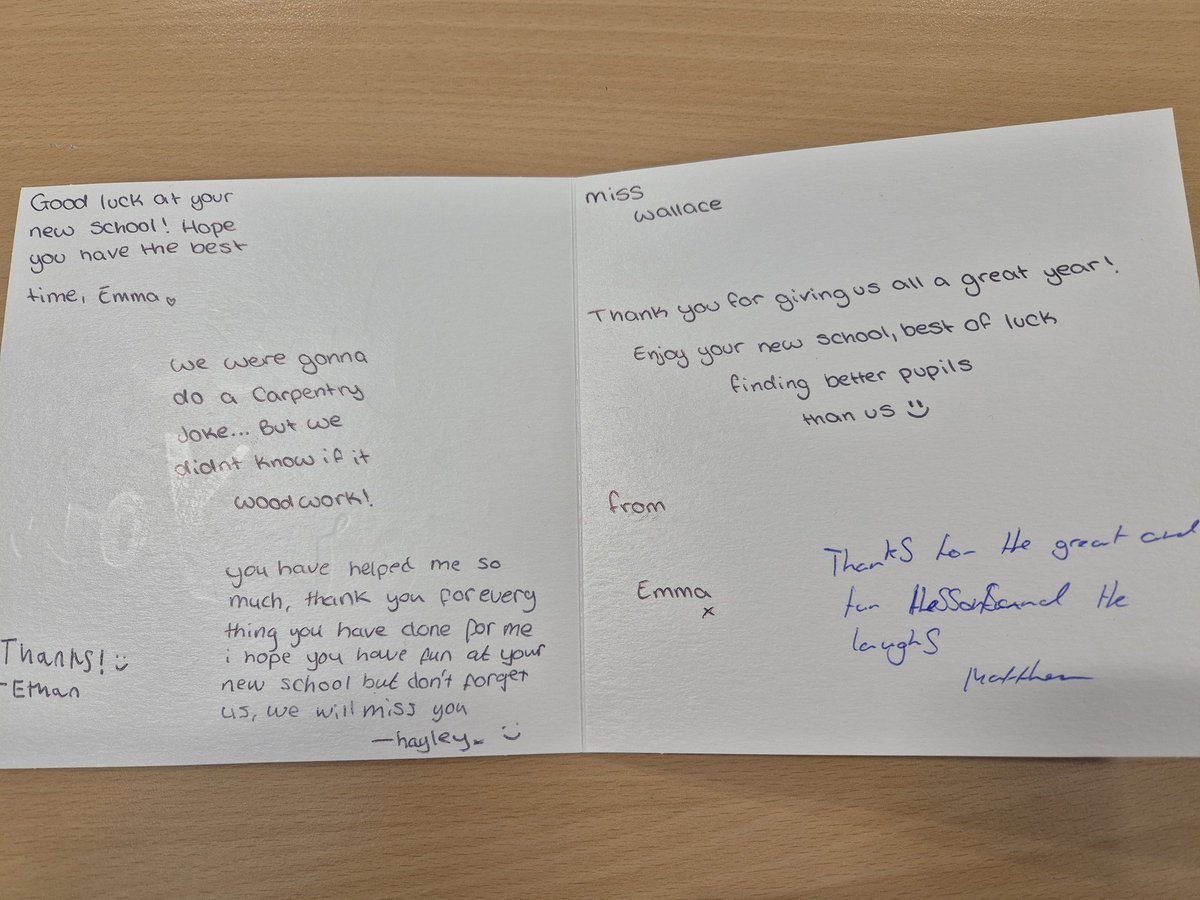 Good luck at your
new school! Hope
you have the best
time, Emma ♡
we were gonna
do a Carpentry
Joke... But we
didnt know if it
woodwork!
you have helped me so
much, thank you for every
thing you have done for me
i hope you have fun at your
new school but don't forget
us, we will miss you
—hayley :)
Thanks! :)
-Ethan
miss
wallace
Thank you for giving us all a great year!
Enjoy your new school, best of luck
finding better pupils
than us :)
from
Emma
x
Thanks for the great and
fun and the
laughs
Matthew